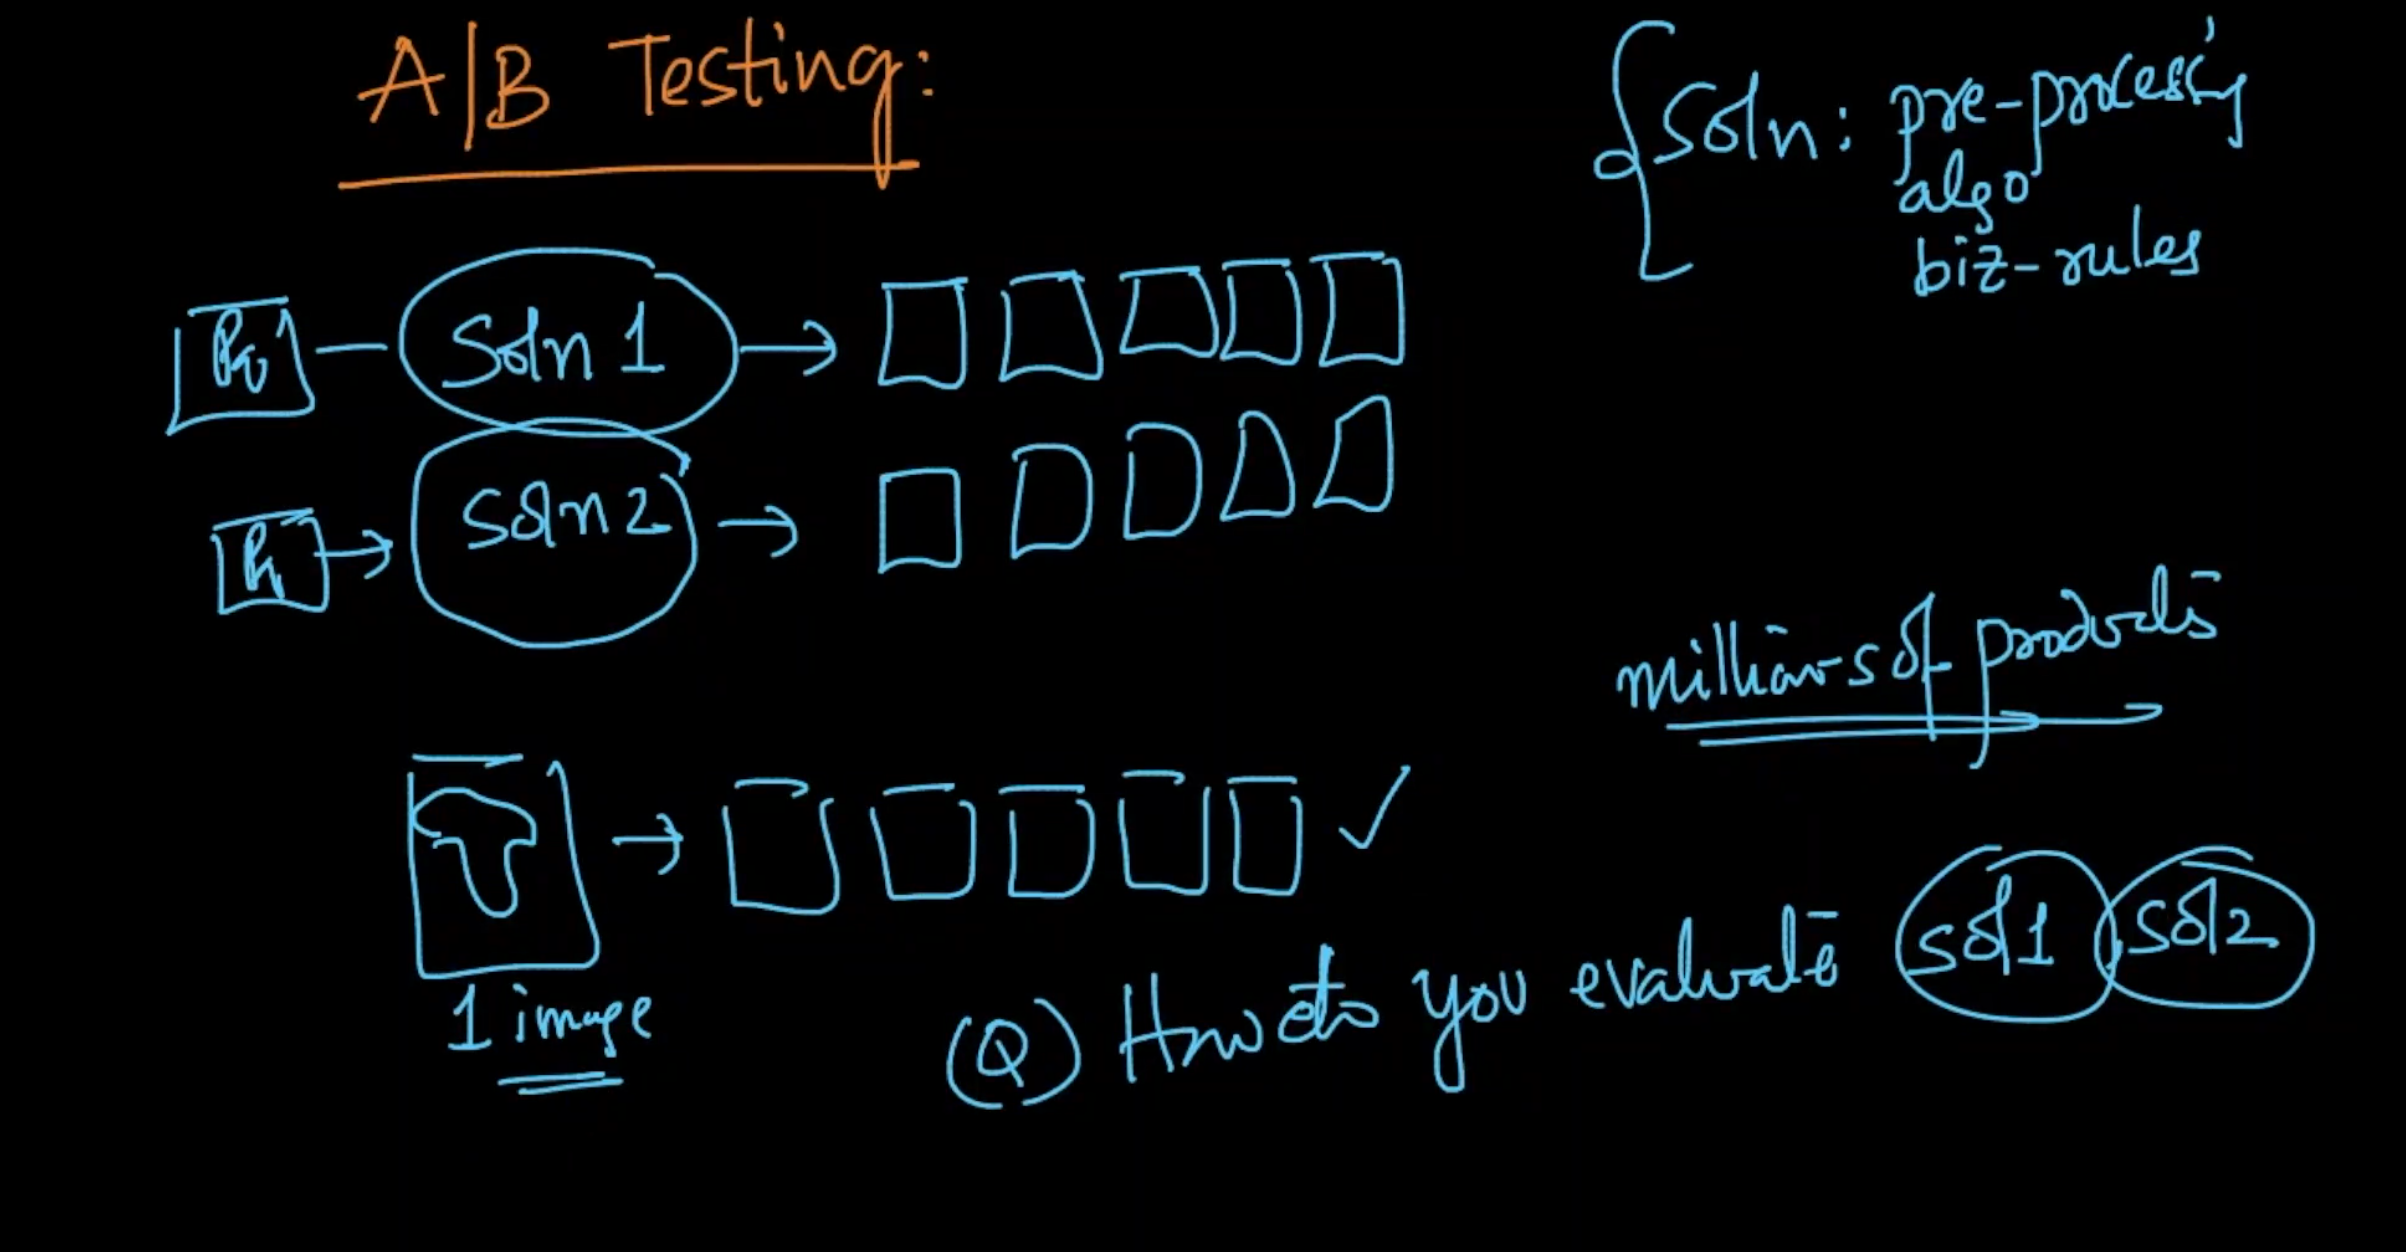 A/B Testing:
Soln: pre-processing
algo
biz-rules
Soln 1
Soln 2
millions of products
1 image
(Q) How do you evaluate sol1 sol2